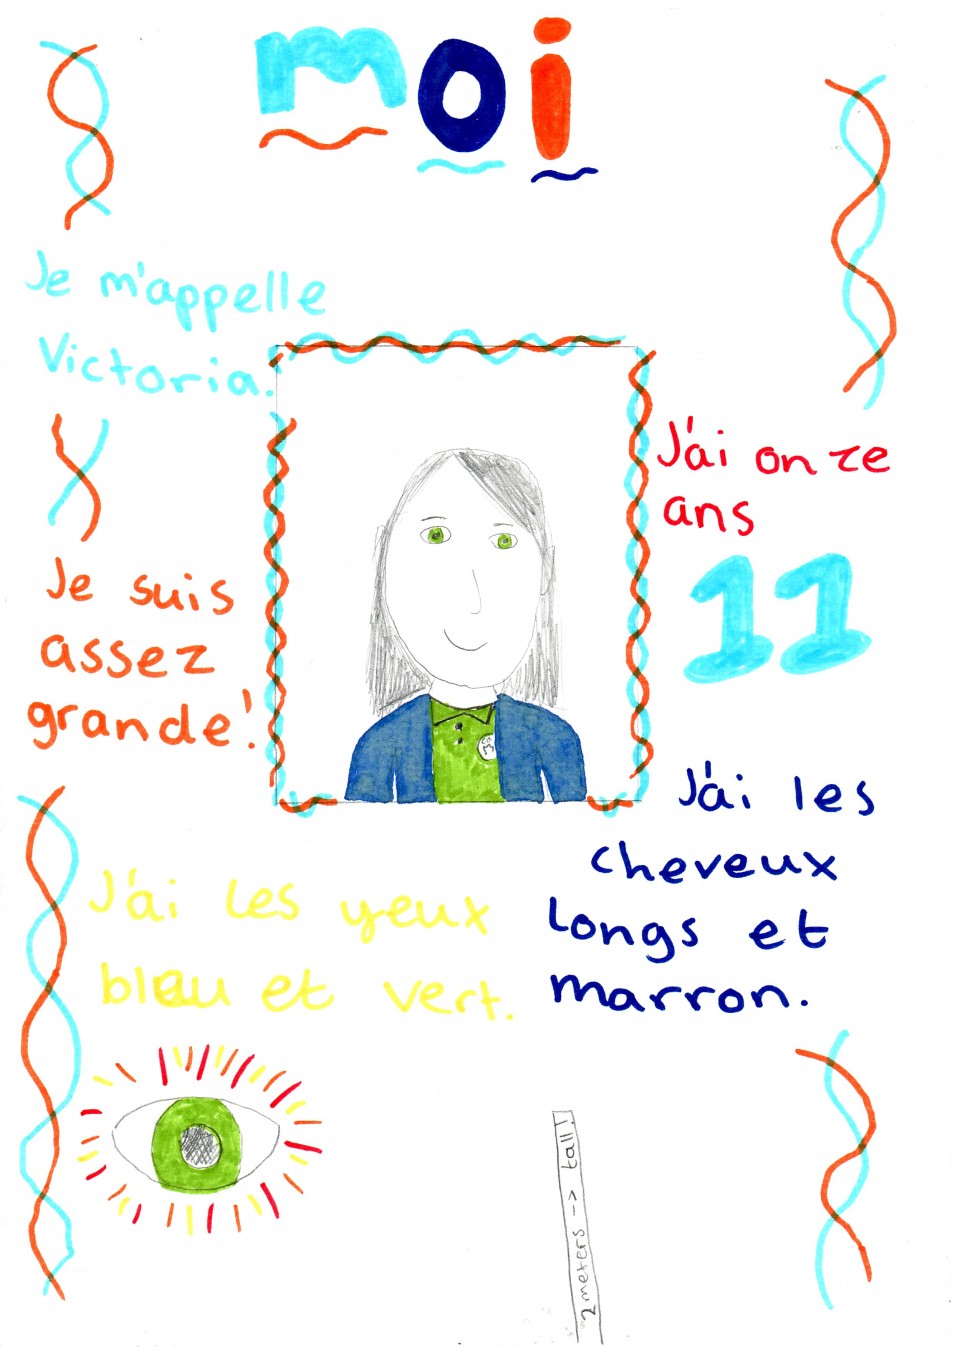 moi
Je m'appelle
Victoria.
J'ai onze
ans
11
Je suis
assez
grande!
J'ai les
cheveux
longs et
marron.
J'ai les yeux
bleu et vert.
2 meters -> tall!